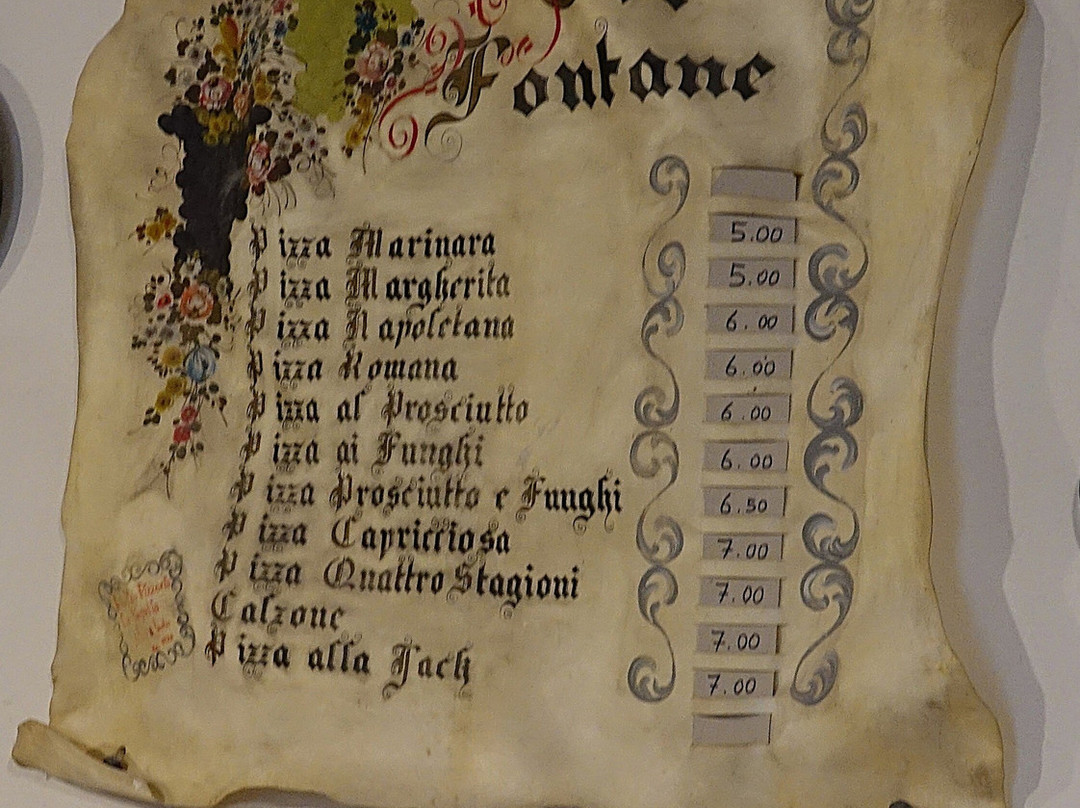 Fontane
Pizza Marinara 5.00
Pizza Margherita 5.00
Pizza Napoletana 6.00
Pizza Romana 6.00
Pizza al Prosciutto 6.00
Pizza ai Funghi 6.00
Pizza Prosciutto e Funghi 6.50
Pizza Capricciosa 7.00
Pizza Quattro Stagioni 7.00
Calzone 7.00
Pizza alla Jack 7.00